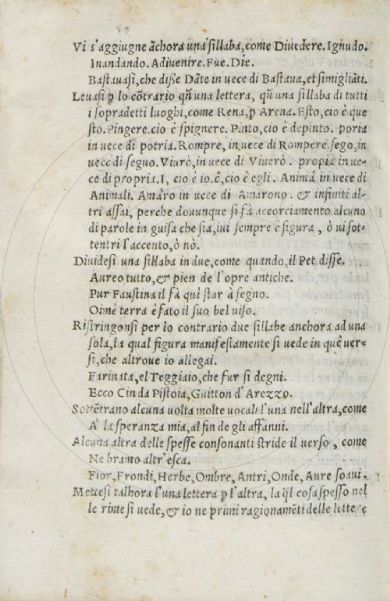 Vi s'aggiugne āchora una sillaba, come Diuedere. Ignudo.
Inandando. Adiuenire. Fue. Die.
Bastauasi, che diße Dāte in uece di Bastaua, et simigliāti.
Leuasi ꝑ lo cōtrario qn̄ una lettera, qn̄ una sillaba di tutti
i sopradetti luoghi, come Rena, ꝑ Arena. Esto, cio è que
sto. Pingere. cio è spignere. Pinto, cio è depinto. poria
in uece di potria. Rompre, in uece di Rompere. sego, in
uece di seguo. Viurò, in uece di Viuerò. propia in ue-
ce di propria. I, cio è io. ē, cio è egli. Animā in uece di
Animali. Amāro in uece di Amarono. & infiniti al-
tri assai, perche douunque si fà accorciamento alcuno
di parole in guisa che sia, iui sempre è figura, ò ui sot-
tentri l'accento, ò nò.
Diuidesi una sillaba in due, come quando, il Pet. disse.
Aureo tutto, & pien de l'opre antiche.
Pur Faustina il fà qui star à segno.
Oime terra è fato il suo bel uiso.
Ristringonsi per lo contrario due sillabe anchora ad una
sola, la qual figura manifestamente si uede in quē uer-
si, che altroue io allegai.
Farinata, el Teggiaio, che fur si degni.
Ecco Cin da Pistoia, Guitton d'Arezzo.
Sottētrano alcuna uolta molte uocali l'una nell'altra, come
A' la speranza mia, al fin de gli affanni.
Alcuna altra delle spesse consonanti stride il uerso, come
Ne bramo altr'esca.
Fior, Frondi, Herbe, Ombre, Antri, Onde, Aure soaui.
Mettesi talhora l'una lettera ꝑ l'altra, la q̄l cosa spesso nel
le rime si uede, & io ne primi ragionamēti delle lettere